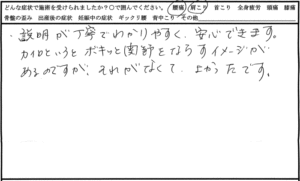 どんな症状で施術を受けられましたか？○で囲んでください。 腰痛 肩こり 首こり 全身疲労 頭痛 膝痛
骨盤の歪み 出産後の症状 妊娠中の症状 ギックリ腰 背中こり その他
・説明が丁寧でわかりやすく、安心できます。
カイロというとボキッと関節をならすイメージが
あるのですが、それがなくて、よかったです。